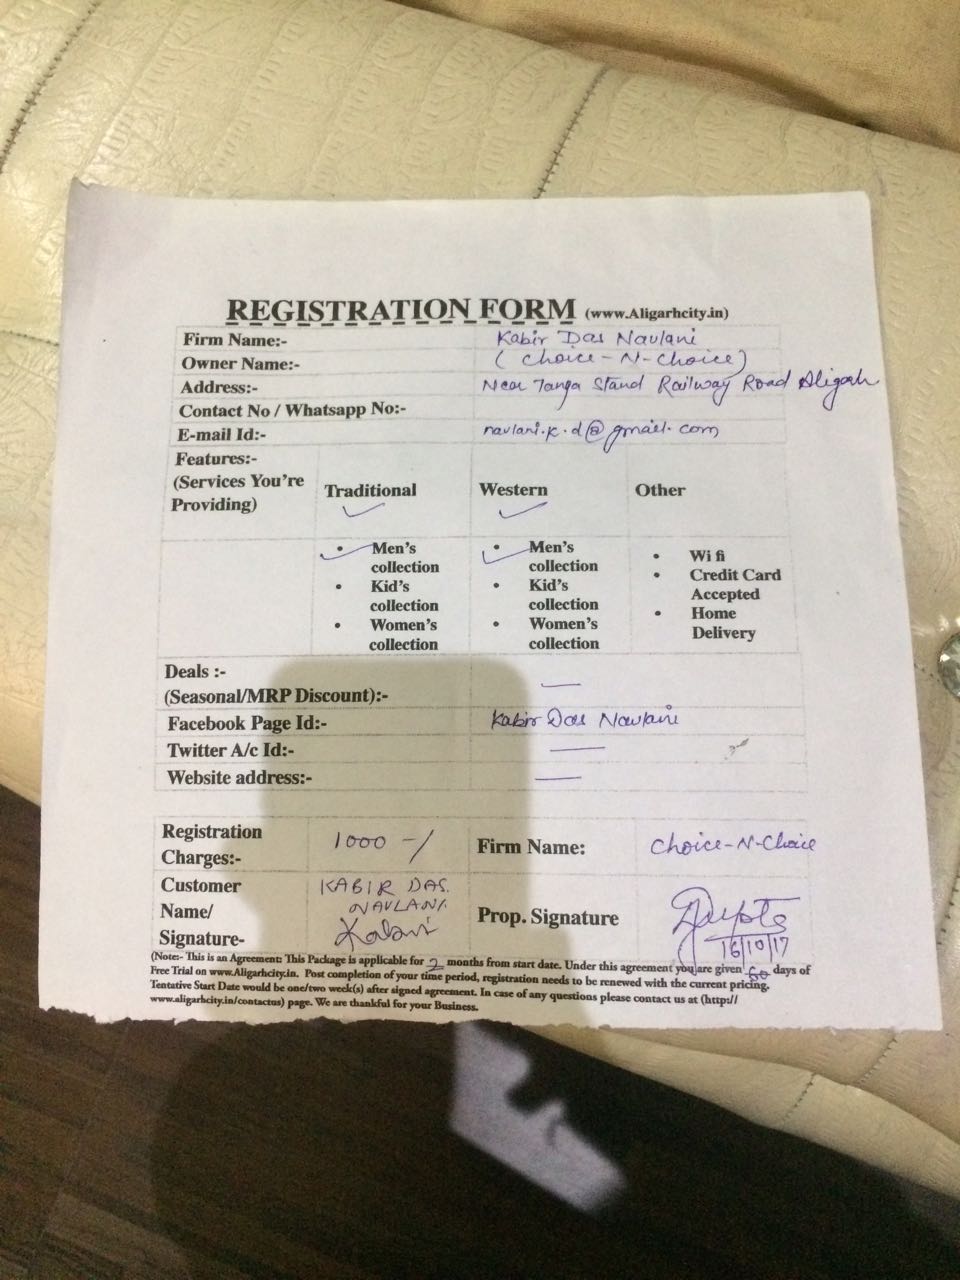 REGISTRATION FORM (www.Aligarhcity.in)
Firm Name:- Kabir Das Navlani
Owner Name:- (Choice-N-Choice)
Address:- Near Tanga Stand Railway Road Aligarh
Contact No / Whatsapp No:-
E-mail Id:- navlani.k.d@gmail.com
Features:-
(Services You're Providing)
Traditional
Western
Other
• Men's collection
• Kid's collection
• Women's collection
• Men's collection
• Kid's collection
• Women's collection
• Wi fi
• Credit Card Accepted
• Home Delivery
Deals :-
(Seasonal/MRP Discount):- —
Facebook Page Id:- Kabir Das Navlani
Twitter A/c Id:- —
Website address:- —
Registration Charges:- 1000-/
Firm Name: Choice-N-Choice
Customer Name/ Signature- KABIR DAS. NAVLANI.
Kabir
Prop. Signature Gupta
16/10/17
(Note:- This is an Agreement: This Package is applicable for 2 months from start date. Under this agreement you are given 60 days of
Free Trial on www.Aligarhcity.in. Post completion of your time period, registration needs to be renewed with the current pricing.
Tentative Start Date would be one/two week(s) after signed agreement. In case of any questions please contact us at (http://
www.aligarhcity.in/contactus) page. We are thankful for your Business.